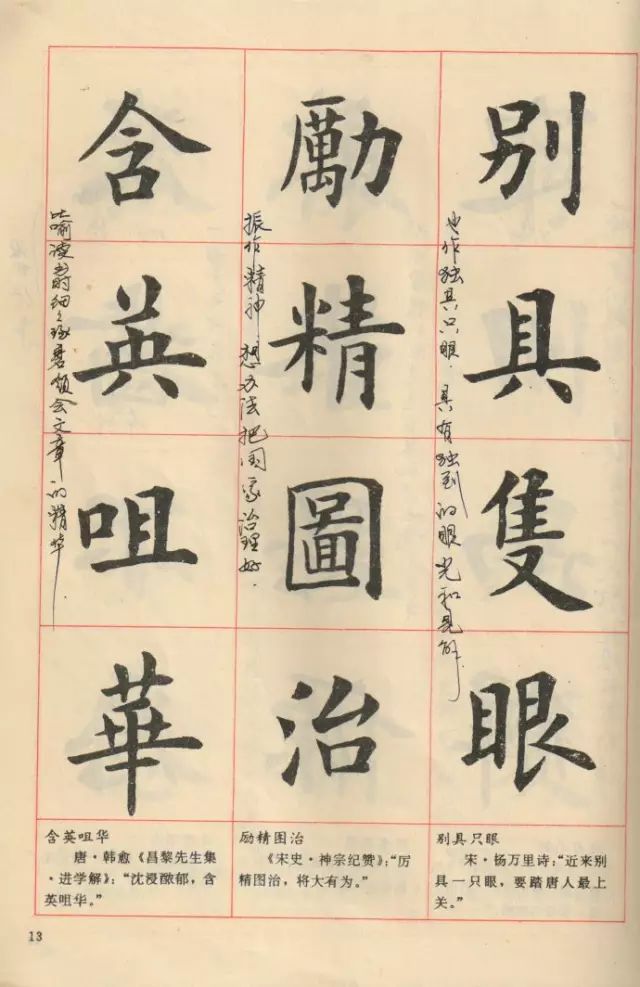 别具隻眼
也作独具只眼.具有独到的眼光和见解.
勵精圖治
振作精神 想办法把国家治理好.
含英咀華
比喻读书时细细琢磨领会文章的精华.
别具只眼
宋·杨万里诗:“近来别
具一只眼,要踏唐人最上
关。”
励精图治
《宋史·神宗纪赞》:“厉
精图治,将大有为。”
含英咀华
唐·韩愈《昌黎先生集
·进学解》:“沈浸醲郁,含
英咀华。”
13